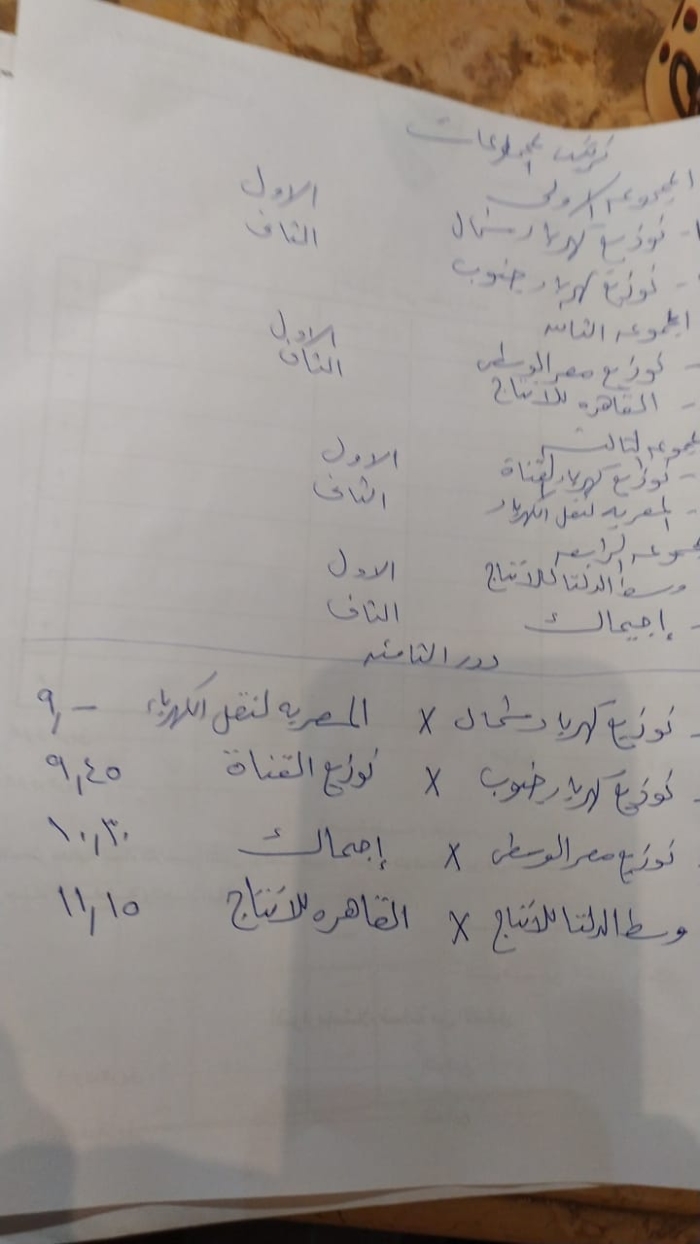 ترتيب المجموعات
المجموعه الاولى
١- توزيع كهرباء شمال الاول
- توزيع كهرباء جنوب الثانى
المجموعه الثانيه
- توزيع مصر الوسطى الاول
- القاهره للانتاج الثانى
المجموعه الثالثه
- توزيع كهرباء القناة الاول
- المصريه لنقل الكهرباء الثانى
المجموعه الرابعه
وسط الدلتا للانتاج الاول
- إجيماك الثانى
دور الثامنه
- توزيع كهرباء شمال X المصريه لنقل الكهرباء ٩,-
- توزيع كهرباء جنوب X توزيع القناة ٩,٤٥
- توزيع مصر الوسطى X إجماك ١٠,٣٠
وسط الدلتا للانتاج X القاهره للانتاج ١١,١٥